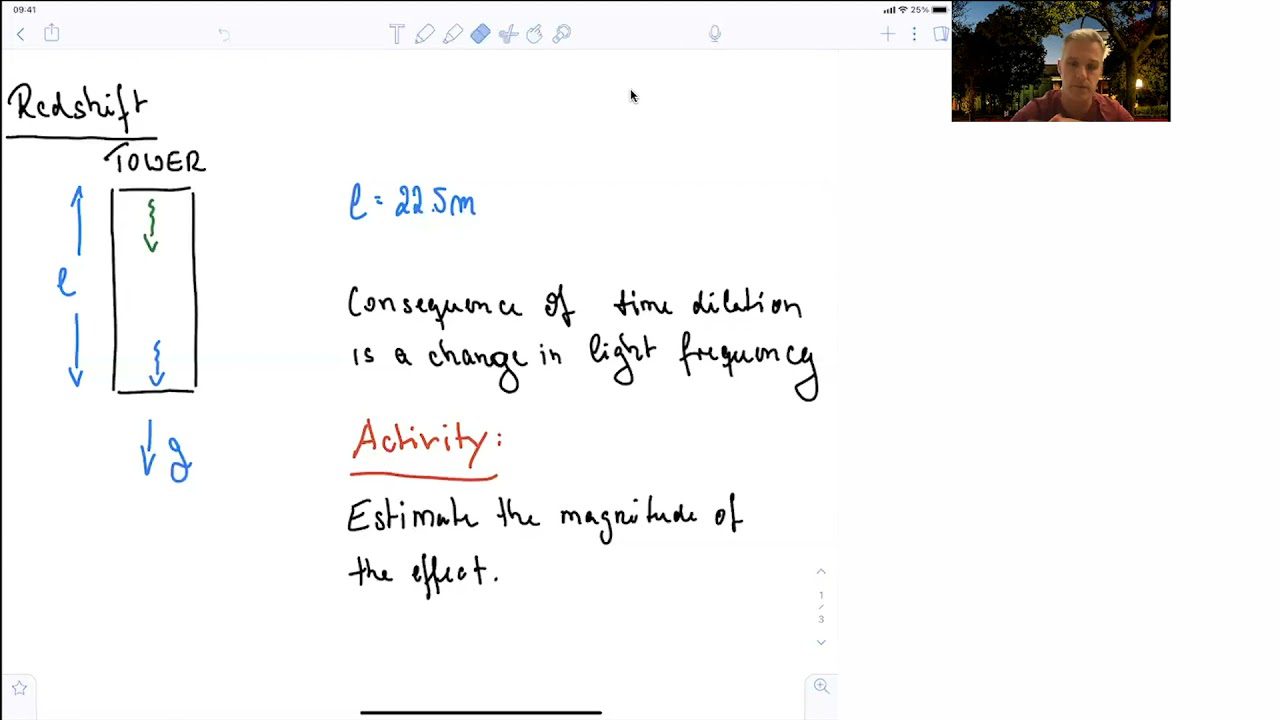 09:41
25%
Redshift
TOWER
l
g
l = 22.5m
Consequence of time dilation
is a change in light frequency
Activity:
Estimate the magnitude of
the effect.
1
/
3